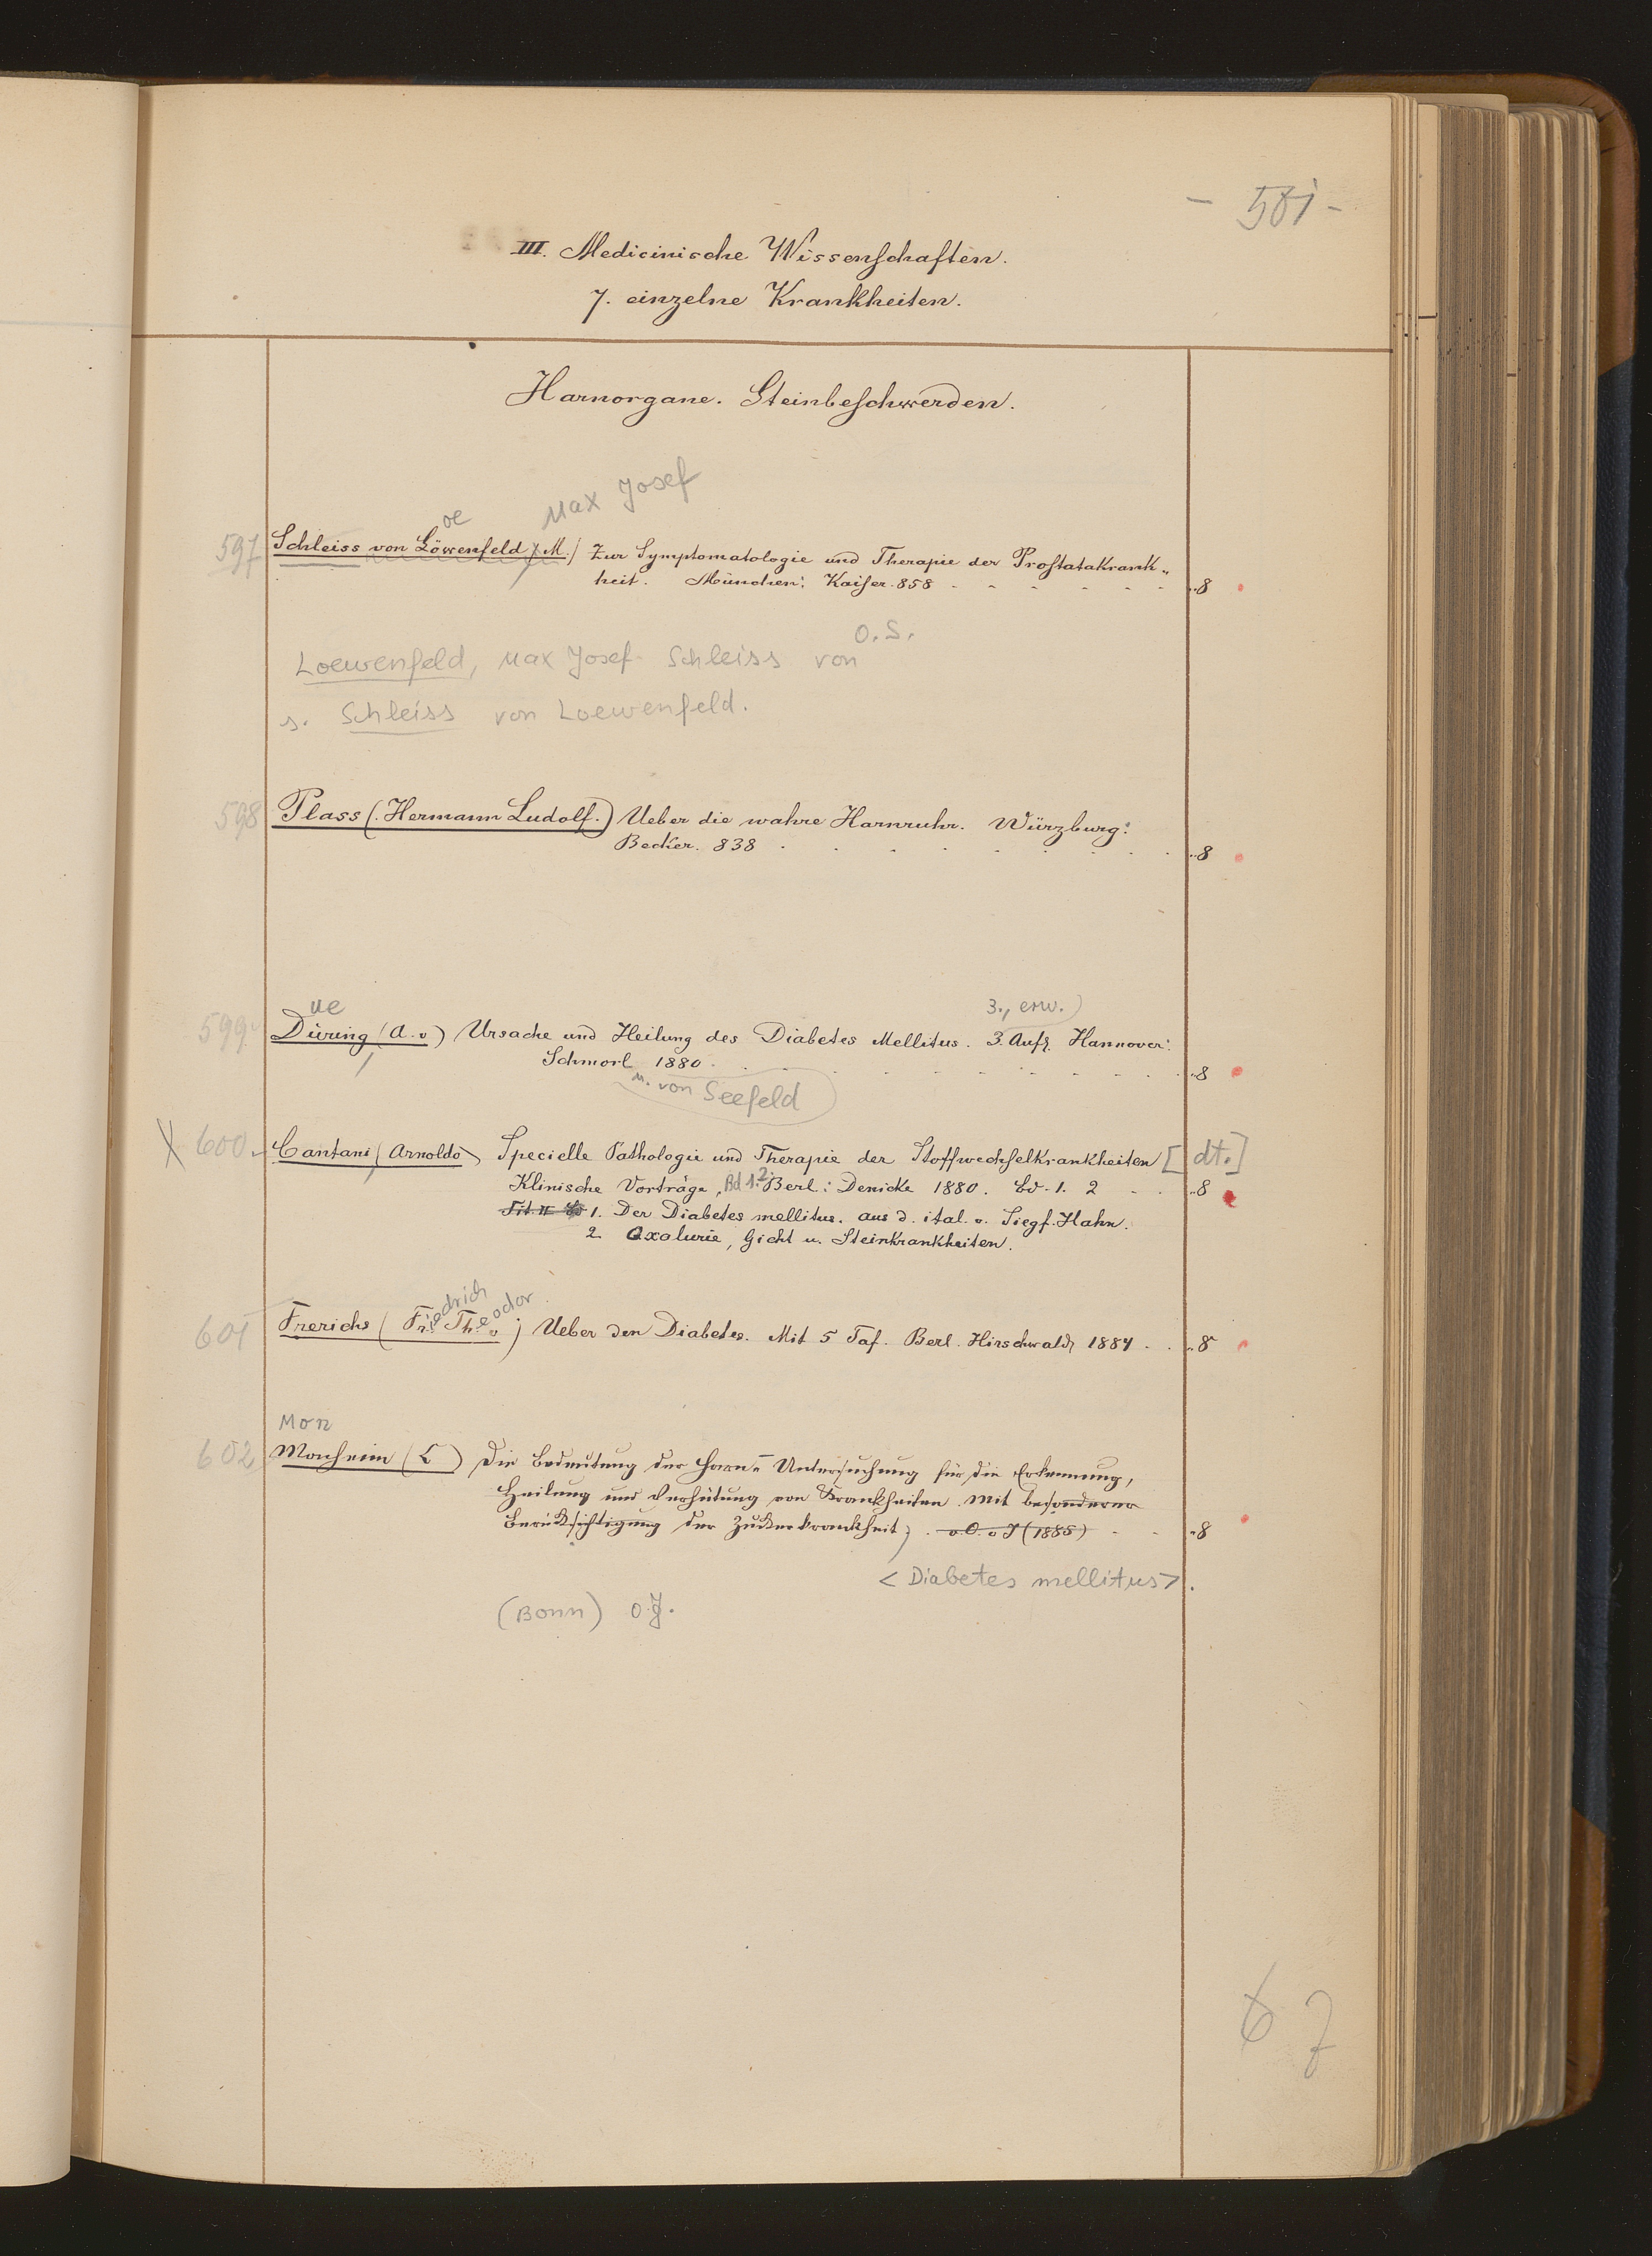 - 581 -
III. Medicinische Wissenschaften.
7. einzelne Krankheiten.
Harnorgane. Steinbeschwerden.
Max Josef
oe
597 Schleiss von Löwenfeld, M. / Zur Symptomatologie und Therapie der Prostatakrank„
heit. München: Kaiser. 858 - - - - - - „8
o. S.
Loewenfeld, Max Josef Schleiss von
s. Schleiss von Loewenfeld.
598 Plass (Hermann Ludolf.) Ueber die wahre Harnruhr. Würzburg:
Becker. 838 . . . . . . . . „8
ue 3., erw.)
599 Düring (A. v) Ursache und Heilung des Diabetes Mellitus. 3. Aufl. Hannover:
Schmorl 1880. . . . . . . . . . „8
u. von Seefeld
X 600 Cantani (Arnoldo) Specielle Pathologie und Therapie der Stoffwechselkrankheiten [dt.]
Klinische Vorträge, Bd 1.2. Berl.: Denicke 1880. Bd. 1. 2 - - „8
Tit. II Bd 1. Der Diabetes mellitus. aus d. ital. v. Siegf. Hahn.
2 Oxalurie, Gicht u. Steinkrankheiten.
iedrich eodor
601 Frerichs (Fr. Th. v) Ueber den Diabetes. Mit 5 Taf. Berl. Hirschwald, 1884 . . „8
Mon
602 Monheim (L) Die Bedeutung der Harn= Untersuchung für die Erkennung,
Heilung und Verhütung von Krankheiten. Mit besonderer
Berücksichtigung der Zuckerkrankheit; . o. O. o J (1885) - - „8
< Diabetes mellitus > .
(Bonn) o. J.
6 7